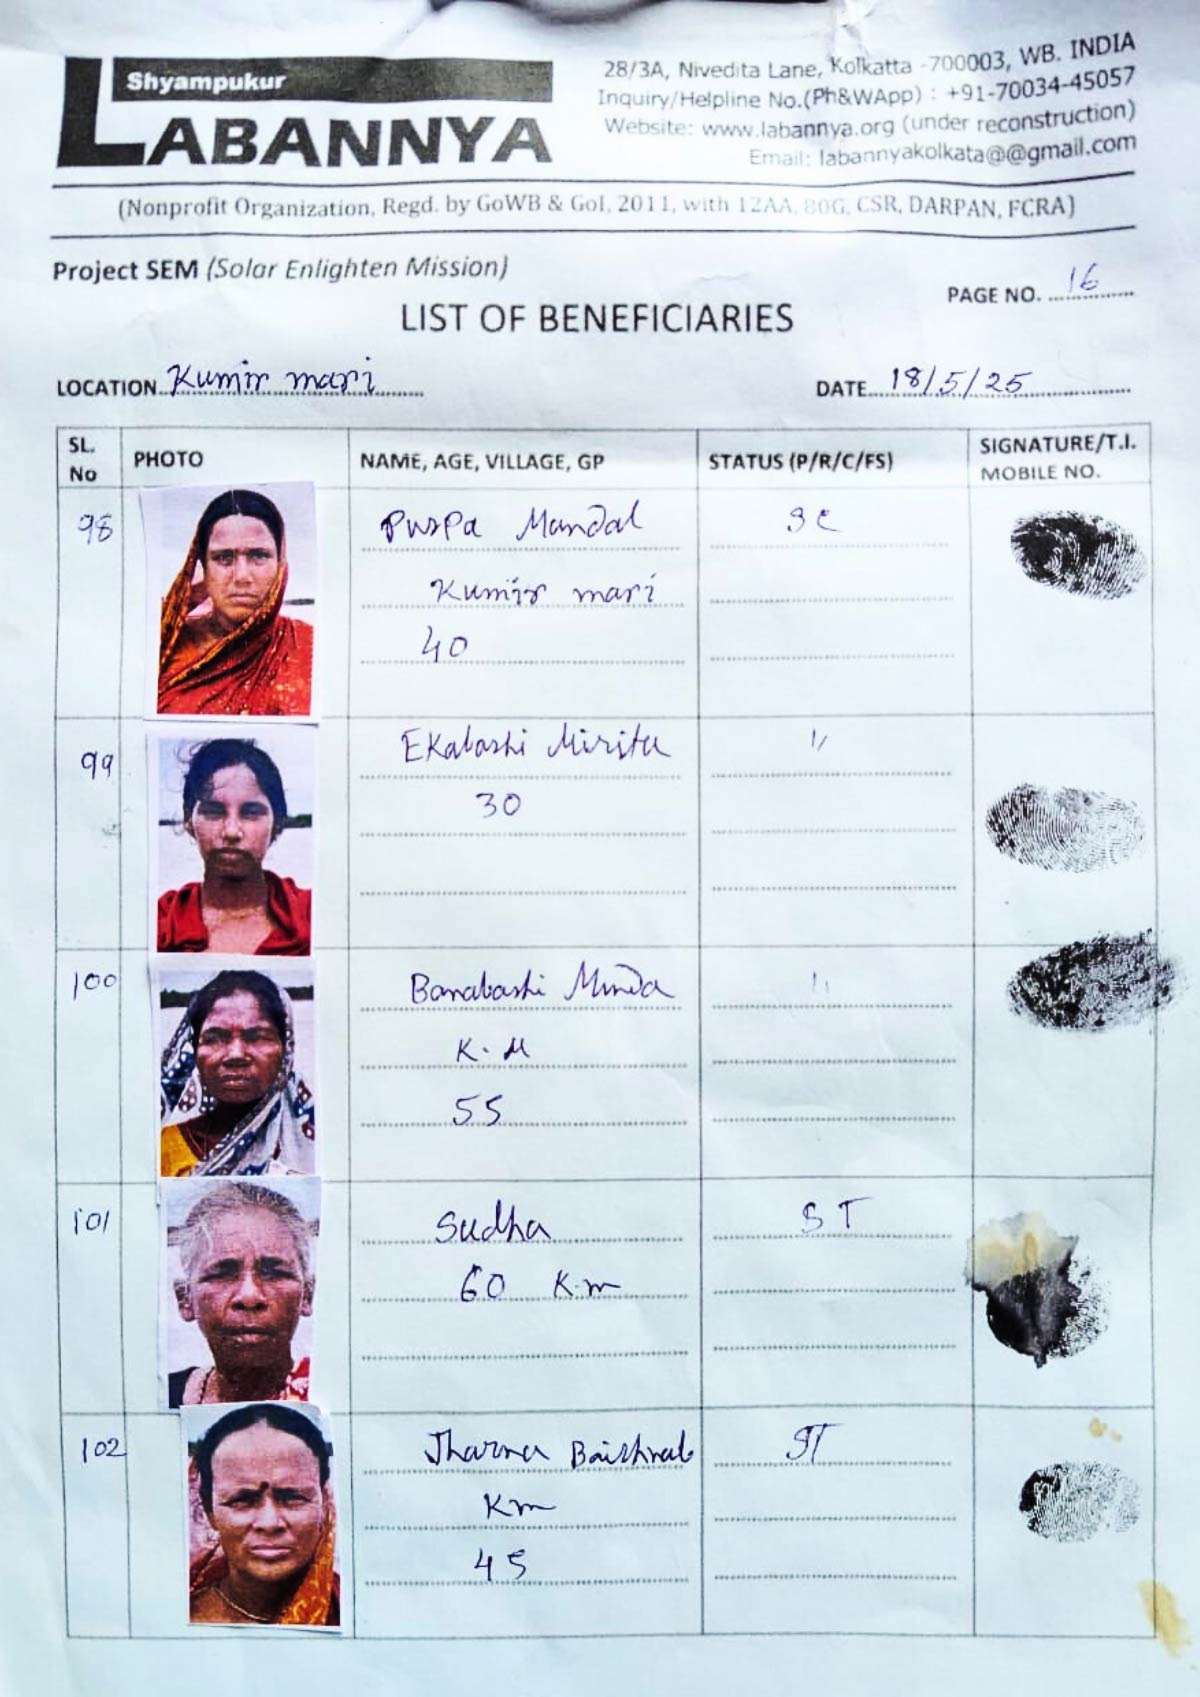 Shyampukur
LABANNYA
28/3A, Nivedita Lane, Kolkatta -700003, WB. INDIA
Inquiry/Helpline No.(Ph&WApp) : +91-70034-45057
Website: www.labannya.org (under reconstruction)
Email: labannyakolkata@@gmail.com
(Nonprofit Organization, Regd. by GoWB & GoI, 2011, with 12AA, 80G, CSR, DARPAN, FCRA)
Project SEM (Solar Enlighten Mission)
PAGE NO. 16
LIST OF BENEFICIARIES
LOCATION Kumir mari
DATE 18/5/25
SL. No
PHOTO
NAME, AGE, VILLAGE, GP
STATUS (P/R/C/FS)
SIGNATURE/T.I. MOBILE NO.
98
Puspa Mandal
SC
Kumir mari
40
99
Ekabashi
"
30
100
Banabashi Munda
"
K. M
55
101
Sudha
ST
60 K.m
102
Jharna Baishnab
ST
Km
45